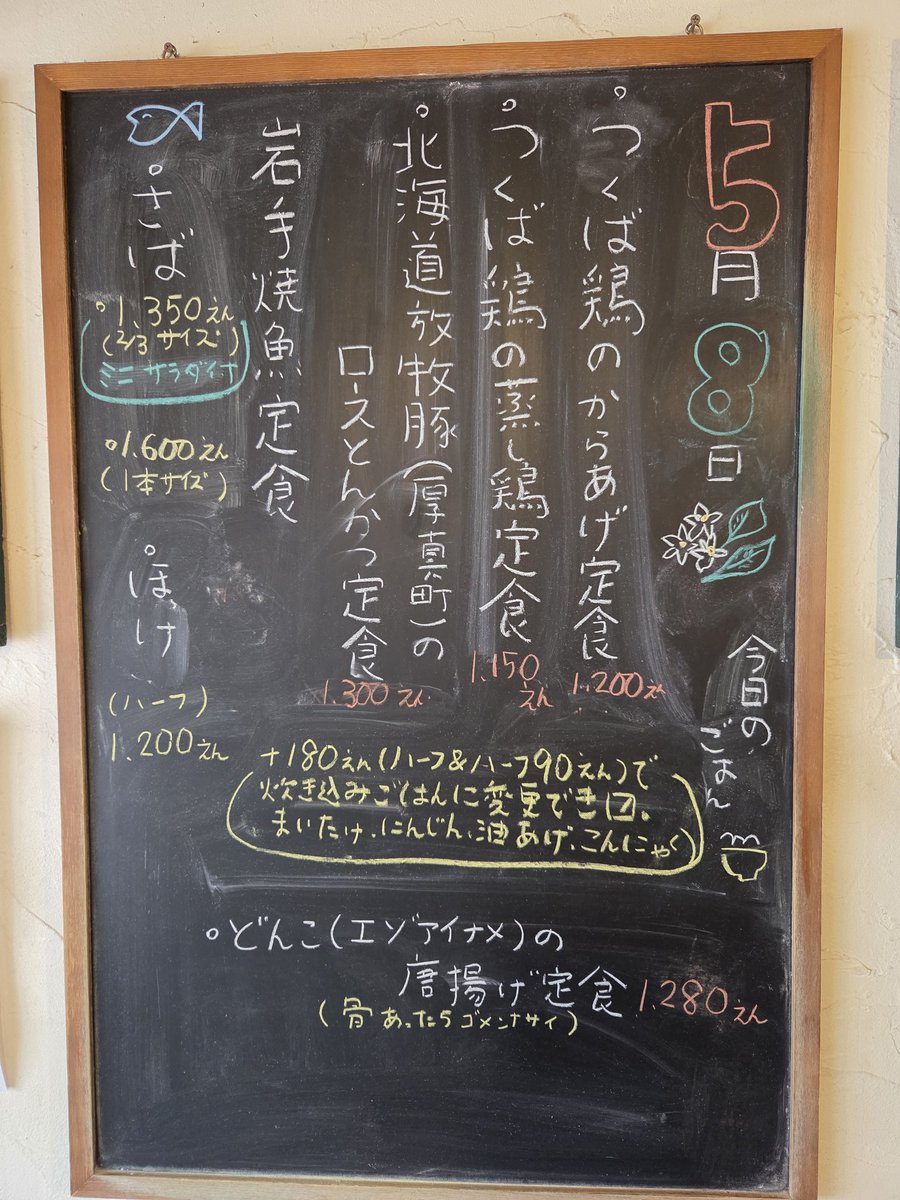 5月8日
今日の
ごはん
つくば鶏のからあげ定食
1,200えん
つくば鶏の蒸し鶏定食
1,150
えん
北海道放牧豚(厚真町)の
ロースとんかつ定食
1,300えん
岩手焼魚定食
さば
1,350えん
(2/3サイズ)
ミニサラダイナ
1,600えん
(1本サイズ)
ほっけ
(ハーフ)
1,200えん
+180えん(ハーフ&ハーフ90えん)で
炊き込みごはんに変更でき〼、
まいたけ、にんじん、油あげ、こんにゃく
どんこ(エゾアイナメ)の
唐揚げ定食 1,280えん
(骨あったらゴメンナサイ)